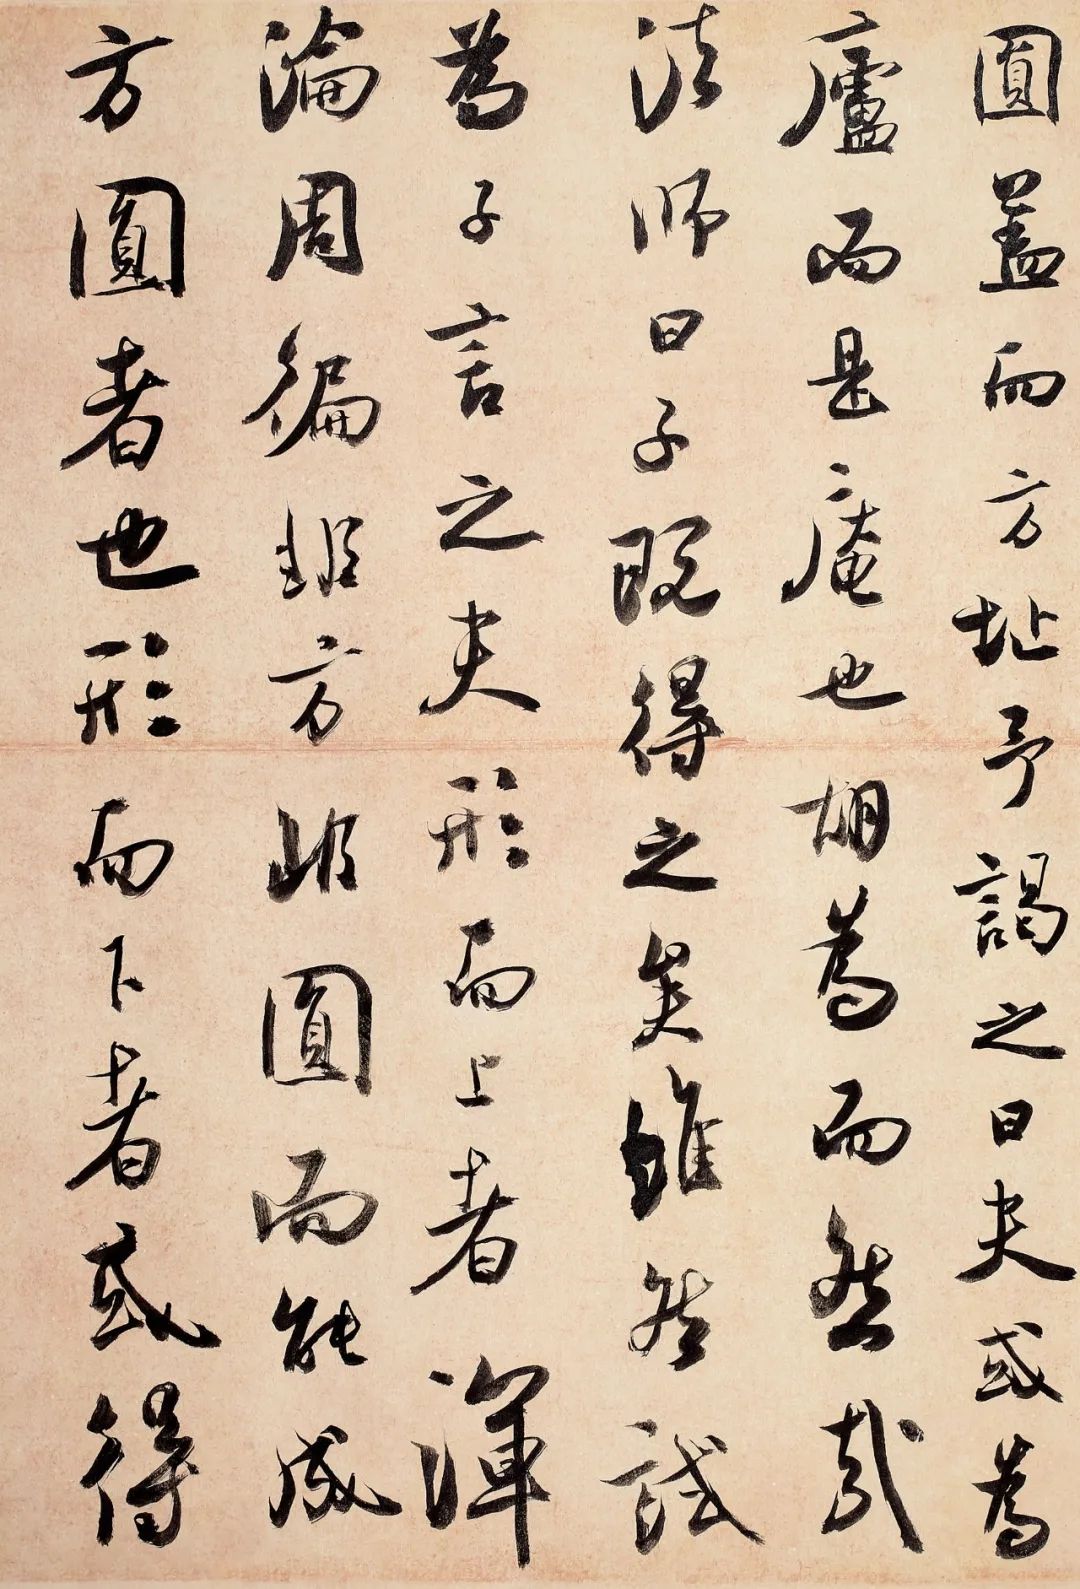 圓蓋而方址予謁之曰夫或為
廬而是庵也胡為而然哉
法師曰子既得之矣雖然試
為子言之夫形而上者渾
淪周徧非方非圓而能成
方圓者也形而下者或得